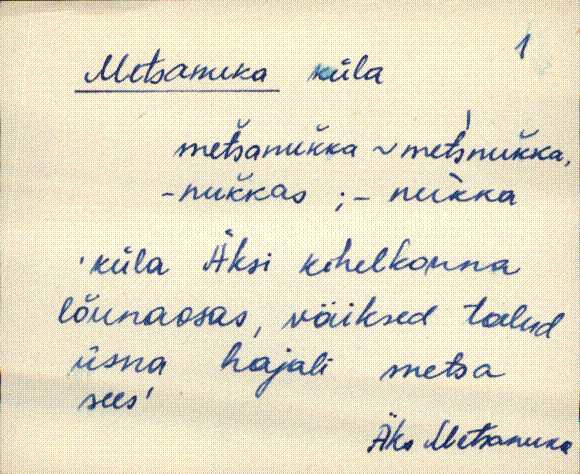 1
Metsanuka küla
metšanuǩka ~ metsnuǩka,
-nuǩkas ; - nùkka
'küla Äksi kihelkonna
lõunaosas, väiksed talud
üsna hajali metsa
sees'
Äks Metsanuka